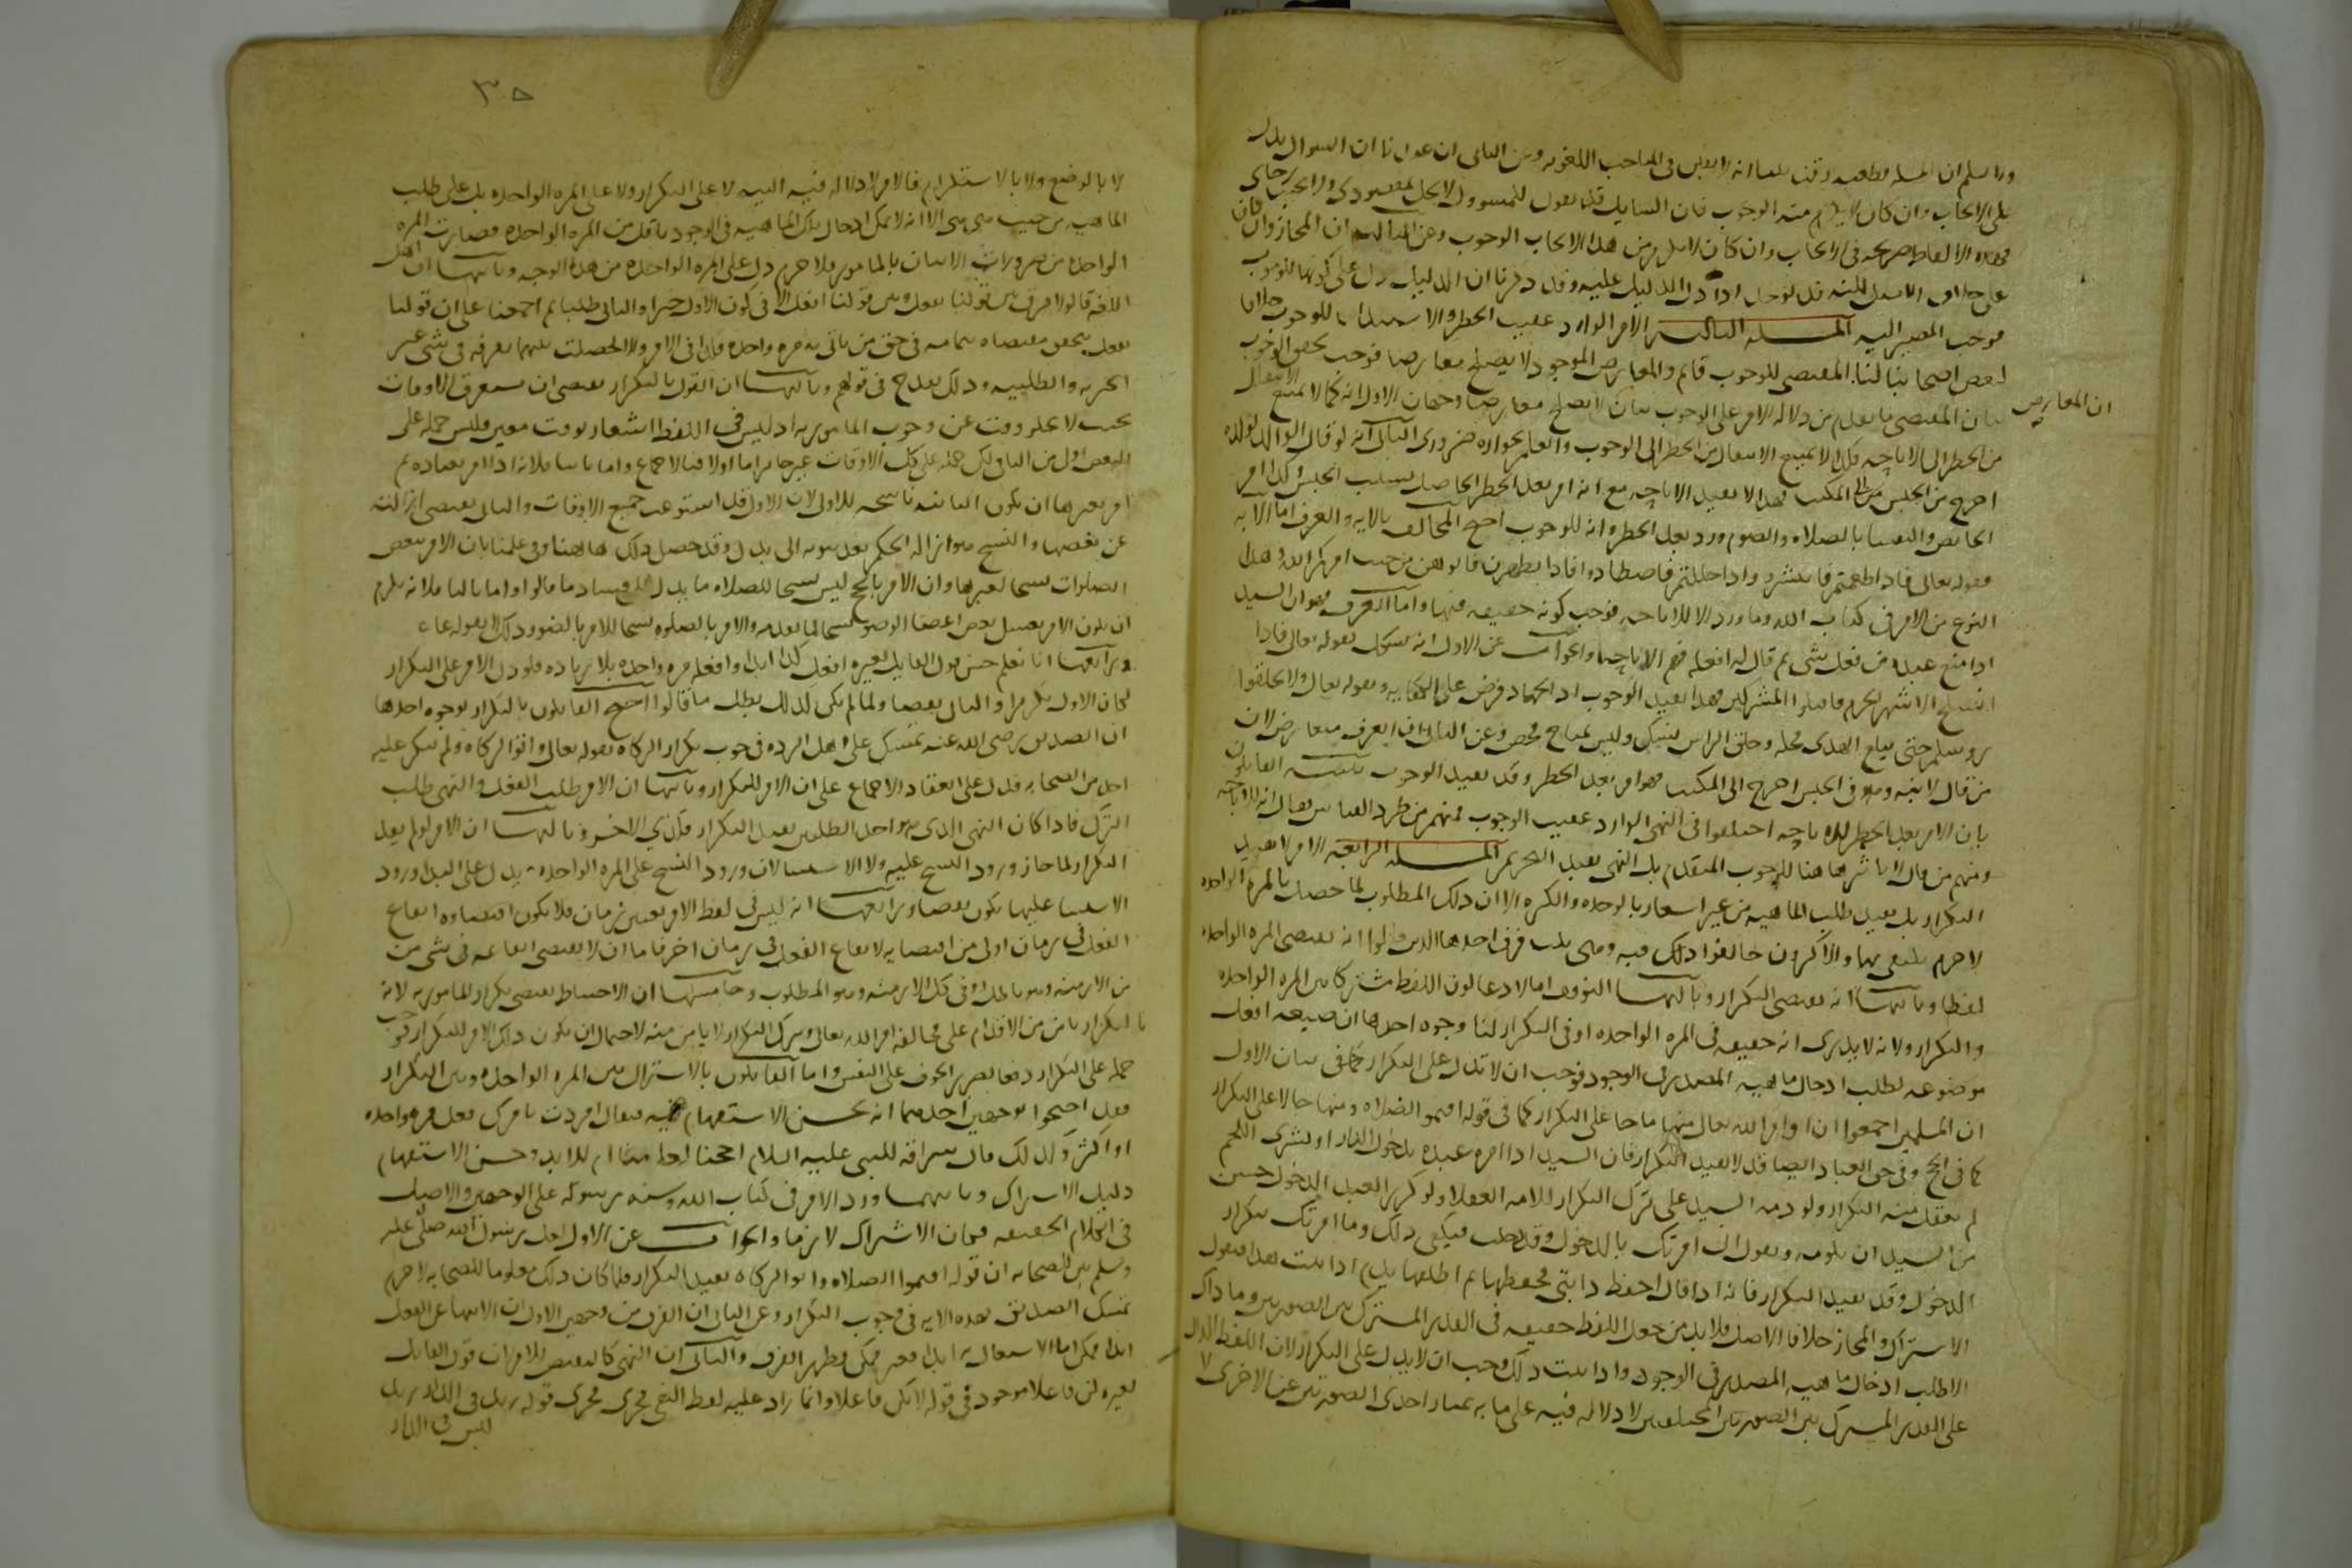 ولا نسلم ان المسلة قطعية وقد بينا انه لا يقين في المباحث اللغوية وعن الثاني ان عندنا ان السوال يدل
على الايجاب وان كان لا يلزم منه الوجوب فان السايل قد يقول للمسوول لا تخل بمقصودي ولا تخيب رجاي
فهذه الالفاظ صريحة في الايجاب وان كان لا يلزم من هذا الايجاب الوجوب وعن الثالث ان المجاز وان كان
على خلاف الاصل لكنه قد يوجد اذا دل الدليل عليه وقد ذكرنا ان الدليل دل على كونها للوجوب
فوجب المصير اليه المسلة الثالثة الامر الوارد عقيب الحظر والاستيذان للوجوب خلافا
لبعض اصحابنا لنا المقتضي للوجوب قايم والمعارض الموجود لا يصلح معارضا فوجب تحقق الوجوب
بيان المقتضي ما تقدم من دلالة الامر على الوجوب بيان لا يصلح معارضا وجهان الاول انه كما لا يمتنع الانتقال
ان المعارض
من الحظر الى الاباحة فكذا لا يمتنع الانتقال من الحظر الى الوجوب والعلم بجوازه ضروري الثاني انه لو قال الوالد لولده
اخرج من الحبس الى المكتب فهذا لا يفيد الاباحة مع انه امر بعد الحظر الحاصل بسبب الحبس وكذا امر
الحايض والنفسا بالصلاه والصوم ورد بعد الحظر وانه للوجوب احتج المخالف بالايه والعرف اما الايه
فقوله تعالى فاذا طعمتم فانتشروا واذا حللتم فاصطادوا فاذا تطهرن فاتوهن من حيث امركم الله وهذا
النوع من الامر في كتاب الله وما ورد الا للاباحه فوجب كونه حقيقه فيها واما العرف فهو ان السيد
اذا منع عبده من فعل شي ثم قال له افعله فهم الاباحه والجواب عن الاول انه يشكل بقوله تعالى فاذا
انسلخ الاشهر الحرم فاقتلوا المشركين فهذا يفيد الوجوب اذ الجهاد فرض على الكفايه وبقوله تعالى ولا تحلقوا
رووسكم حتى يبلغ الهدي محله وحلق الراس نسك وليس بمباح محض وعن الثاني ان العرف متعارض لان
من قال لابنه وهو في الحبس اخرج الى المكتب فهو امر بعد الحظر وقد يفيد الوجوب تنبيه القايلون
بان الامر بعد الحظر للاباحه اختلفوا في النهي الوارد عقيب الوجوب فمنهم من طرد القياس فقال انه للاباحه
ومنهم من قال لا تاثير هاهنا للوجوب المتقدم بل النهي يفيد التحريم المسلة الرابعة الامر لا يفيد
التكرار بل يفيد طلب الماهيه من غير اشعار بالوحده والكثره الا ان ذلك المطلوب لما حصل بالمره الواحده
لا جرم يكتفي بها والاكثرون خالفوا ذلك فيه وهي ثلث فرق احدها الذين قالوا انه يقتضي المره الواحده
لفظا وثانيها انه يقتضي التكرار وثالثها التوقف اما لادعا كون اللفظ مشتركا بين المره الواحده
والتكرار ولانه لا يدرى انه حقيقه في المره الواحده او في التكرار لنا وجوه احدها ان صيغه افعل
موضوعه لطلب ادخال ماهية المصدر في الوجود فوجب ان لا تدل على التكرار كما في بيان الاول
ان المسلمين اجمعوا ان اوامر الله تعالى منها ما جا على التكرار كما في قوله اقيموا الصلاه ومنها جا لا على التكرار
كما في الحج وفي حق العباد ايضا قد لا يفيد التكرار فان السيد اذا امر عبده بدخول الدار او بشرى اللحم
لم يعقل منه التكرار ولو ذمه السيد على ترك التكرار للامه العقلا ولو كرر العبد الدخول حسن
من السيد ان يلومه ويقول اني امرتك بالدخول وقد دخلت فيكفي ذلك وما امرتك بتكرار
الدخول وقد يفيد التكرار فانه اذا قال احفظ دابتي فحفظها ثم اطلقها يذم اذا ثبت هذا فنقول
الاشتراك والمجاز خلاف الاصل فلا بد من جعل اللفظ حقيقه في القدر المشترك بين الصورتين وما ذاك
الا طلب ادخال ماهيه المصدر في الوجود واذا ثبت ذلك وجب ان لا يدل على التكرار لان اللفظ الدال
على القدر المشترك بين الصورتين المختلفتين لا دلاله فيه على ما به تمتاز احدى الصورتين عن الاخرى لا
٣٥
لا بالوضع ولا بالاستلزام فالامر لا دلاله فيه البته لا على التكرار ولا على المره الواحده بل على طلب
الماهيه من حيث هي هي الا انه لا يمكن ادخال تلك الماهيه في الوجود باقل من المره الواحده فصارت المره
الواحده من ضرورات الاتيان بالمامور فلا جرم دل على المره الواحده من هذا الوجه وثانيها ان اهل
اللغه قالوا لا فرق بين قولنا يفعل وبين قولنا افعل الا في كون الاول خبرا والثاني طلبا ثم اجمعنا على ان قولنا
يفعل يتحقق مقتضاه بتمامه في حق من ياتي به مره واحده فكذا في الامر والا لحصلت بينهما تفرقه في شي غير
الخبريه والطلبيه وذلك يقدح في قولهم وثالثها ان القول بالتكرار يقتضي ان يستغرق الاوقات
بحيث لا يخلو وقت عن وجوب المامور به اذ ليس في اللفظ اشعار بوقت معين فليس حمله على
البعض اولى من الباقي لكن حمله على كل الاوقات غير جايز اما اولا فبالاجماع واما ثانيا فلانه اذا امر بعباده ثم
امر بغيرها ان تكون الثانيه ناسخه للاولى لان الاول قد استوعب جميع الاوقات والثاني يقتضي ازالته
عن بعضها والنسخ هو ازاله الحكم بعد ثبوته الى بدل وقد حصل ذلك هاهنا وفي علمنا بان الامر ببعض
الصلوات ليس نسخا لغيرها وان الامر بالحج ليس نسخا للصلاه ما يدل على فساد ما قالوا واما ثالثا فلانه يلزم
ان يكون الامر بغسل بعض اعضا الوضو نسخا لما تقدمه والامر بالصلوه نسخا للامر بالوضو وذلك لا يقوله عاقل
ورابعها انا نعلم حسن قول القايل لغيره افعل كذا ابدا وافعله مره واحده بلا زياده فلو دل الامر على التكرار
لكان الاول تكرارا والثاني نقضا ولما لم يكن كذلك بطل ما قالوا احتج القايلون بالتكرار بوجوه احدها
ان الصديق رضي الله عنه تمسك على اهل الرده في وجوب تكرار الزكاه بقوله تعالى واتوا الزكاه ولم ينكر عليه
احد من الصحابه فدل على انعقاد الاجماع على ان الامر للتكرار وثانيها ان الامر طلب الفعل والنهي طلب
الترك فاذا كان النهي الذي هو احد الطلبين يفيد التكرار فكذي الاخر وثالثها ان الامر لو لم يفد
التكرار لما جاز ورود النسخ عليه ولا الاستثنا لان ورود النسخ على المره الواحده يدل على البدا وورود
الاستثنا عليها يكون نقضا ورابعها انه ليس في لفظ الامر تعيين زمان فلا يكون اقتضاوه ايقاع
الفعل في زمان اولى من اقتضايه لايقاع الفعل في زمان اخر فاما ان لا يقتضي ايقاعه في شي من
من الازمنه وهو باطل او في كل الازمنه وهو المطلوب وخامسها ان الاحتياط يقتضي تكرار المامور به لانه
بالتكرار يامن من الاقدام على مخالفه امر الله تعالى وبترك التكرار لا يامن منه لاحتمال ان يكون ذلك الامر للتكرار فوجب
حمله على التكرار دفعا لضرر الخوف على النفس واما القايلون بالاشتراك بين المره الواحده وبين التكرار
فقد احتجوا بوجهين احدهما انه يحسن الاستفهام فيه فيقال اردت بامرك فعل مره واحده
او اكثر ولذلك قال سراقه للنبي عليه السلام احجنا لعامنا هذا ام للابد وحسن الاستفهام
دليل الاشتراك وثانيهما ورد الامر في كتاب الله وسنه رسوله على الوجهين والاصل
في الكلام الحقيقه فكان الاشتراك لازما والجواب عن الاول لعل رسول الله صلى عليه
وسلم بين للصحابه ان قوله اقيموا الصلاه واتوا الزكاه يفيد التكرار فلما كان ذلك معلوما للصحابه لا جرم
تمسك الصديق بهذه الايه في وجوب التكرار وعن الثاني ان الفرق من وجهين الاول ان الانتهاء عن الفعل
ابدا ممكن اما الاشتغال به ابدا فغير ممكن فظهر الفرق والثاني ان النهي كالنقيض للامر لان قول القايل
لغيره كن فاعلا موجود في قوله لا تكن فاعلا وانما زاد عليه لفظ النفي فجرى مجرى قوله زيد في الدار زيد
ليس في الدار